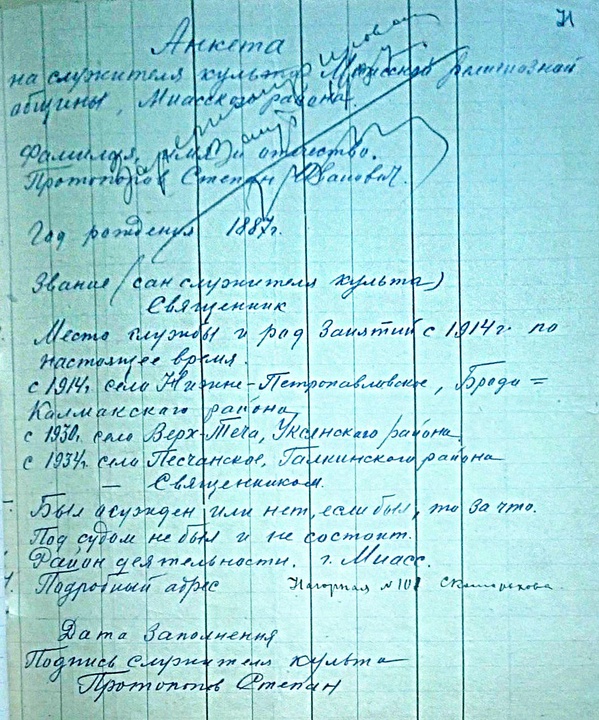 71
Анкета
на служителя культа Миасской религиозной
общины, Миасского района.
Фамилия, имя и отчество.
Протопопов Степан Иванович.
Год рождения 1887г.
Звание (сан служителя культа)
Священник
Место службы и род занятий с 1914г. по
настоящее время.
с 1914г. село Нижне-Петропавловское, Броди=
Калмакского района,
с 1930г. село Верх-Теча, Уксянского района,
с 1934г. село Песчанское, Галкинского района
— Священником.
Был осужден или нет, если был, то за что.
Под судом не был и не состоит.
Район деятельности. г. Миасс.
Подробный адрес Нагорная № 101
Дата заполнения
Подпись служителя культа
Протопопов Степан